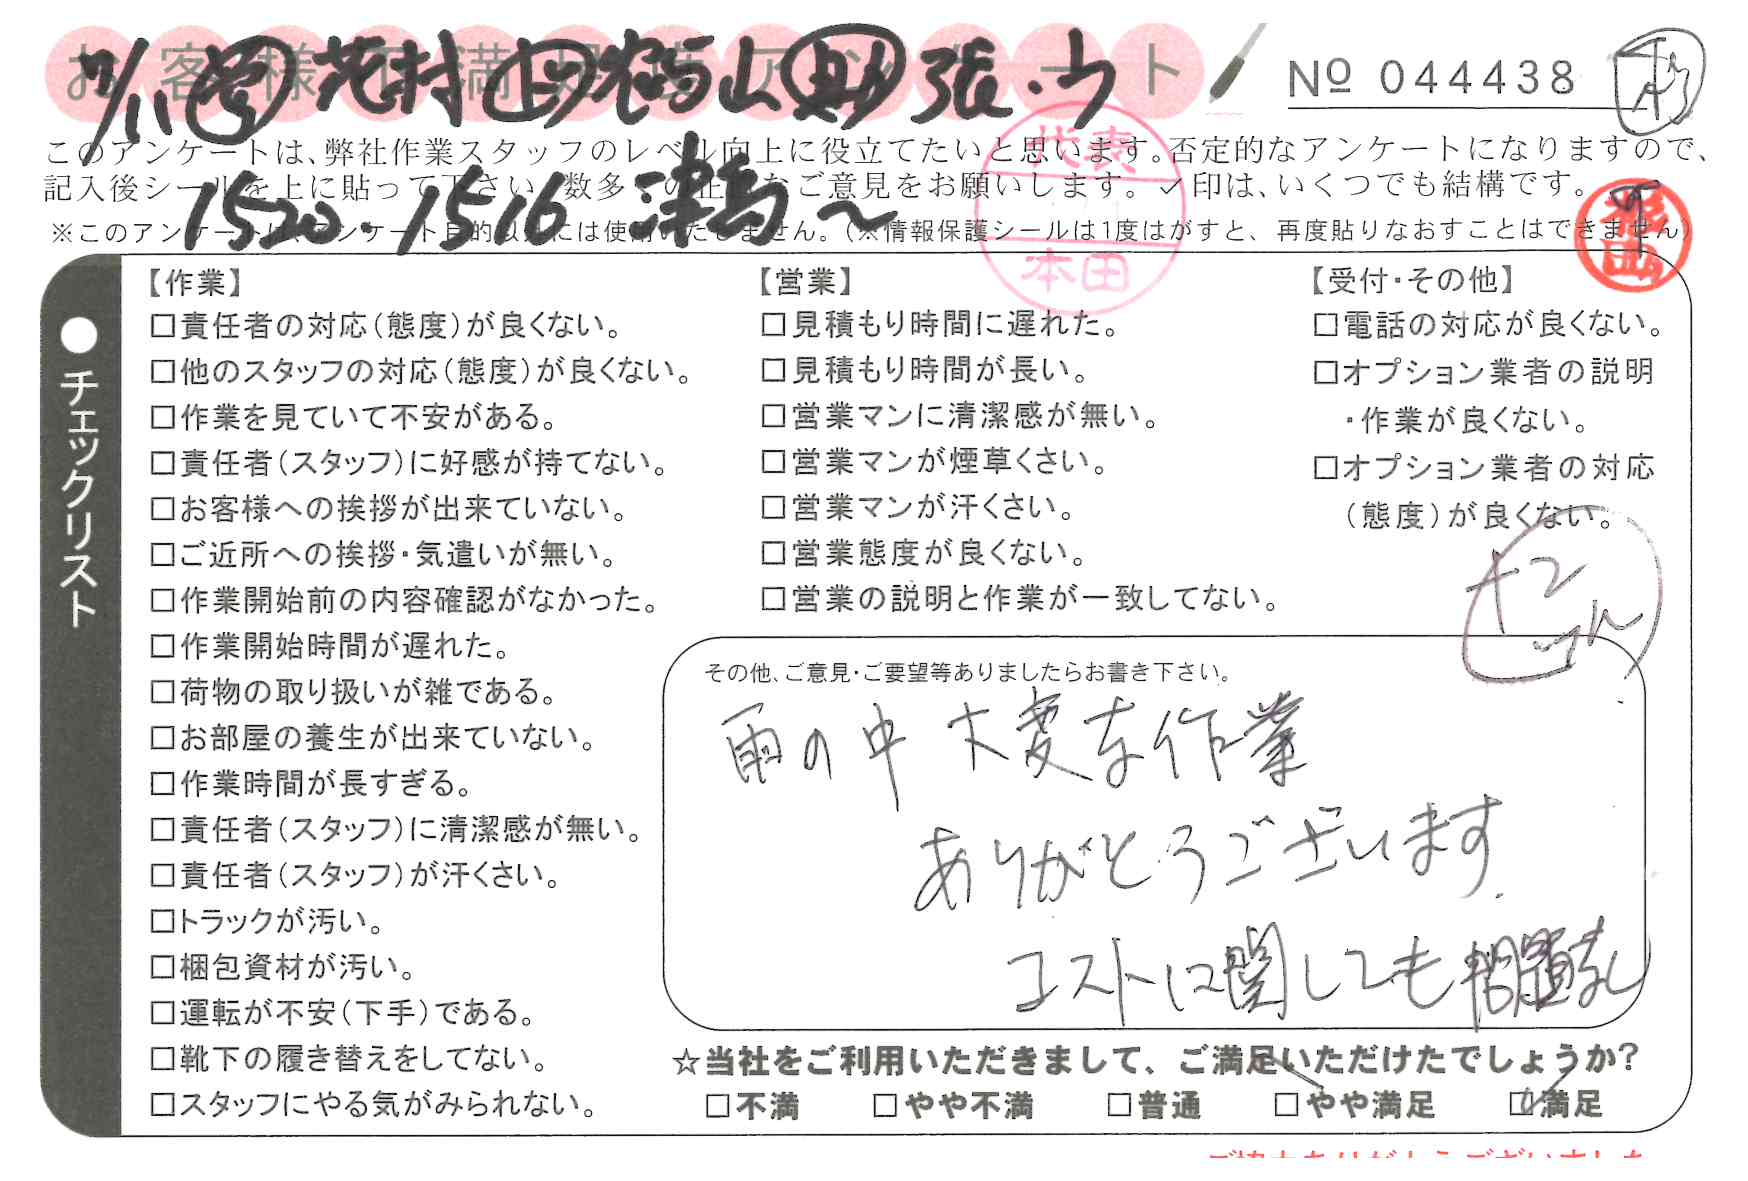 お客様不満足度アンケート
№ 044438
7/11 営 花村 回 福山 助 張・山
このアンケートは、弊社作業スタッフのレベル向上に役立てたいと思います。否定的なアンケートになりますので、
記入後シールを上に貼って下さい。数多くの正直なご意見をお願いします。✓印は、いくつでも結構です。
1520・1516 津高〜
※このアンケートは、アンケート目的以外には使用いたしません。(※情報保護シールは1度はがすと、再度貼りなおすことはできません)
代表
本田
●チェックリスト
【作業】
□責任者の対応(態度)が良くない。
□他のスタッフの対応(態度)が良くない。
□作業を見ていて不安がある。
□責任者(スタッフ)に好感が持てない。
□お客様への挨拶が出来ていない。
□ご近所への挨拶・気遣いが無い。
□作業開始前の内容確認がなかった。
□作業開始時間が遅れた。
□荷物の取り扱いが雑である。
□お部屋の養生が出来ていない。
□作業時間が長すぎる。
□責任者(スタッフ)に清潔感が無い。
□責任者(スタッフ)が汗くさい。
□トラックが汚い。
□梱包資材が汚い。
□運転が不安(下手)である。
□靴下の履き替えをしてない。
□スタッフにやる気がみられない。
【営業】
□見積もり時間に遅れた。
□見積もり時間が長い。
□営業マンに清潔感が無い。
□営業マンが煙草くさい。
□営業マンが汗くさい。
□営業態度が良くない。
□営業の説明と作業が一致してない。
【受付・その他】
□電話の対応が良くない。
□オプション業者の説明
・作業が良くない。
□オプション業者の対応
(態度)が良くない。
その他、ご意見・ご要望等ありましたらお書き下さい。
雨の中 大変な作業
ありがとうございます
コストに関しても問題なし
☆当社をご利用いただきまして、ご満足いただけたでしょうか?
□不満 □やや不満 □普通 □やや満足 ☑満足
ご協力ありがとうございました